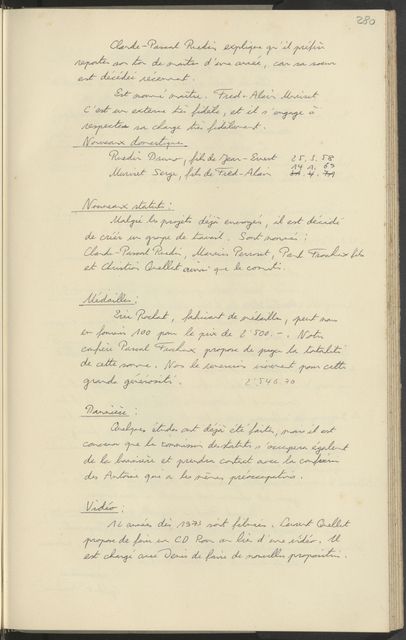 280
Claude-Pascal Ruedin explique qu'il préfère
reporter son tour de maître d'une année, car sa soeur
est décédée récemment.
Est nommé maître : Fred-Alain Monnet
C'est un externe très fidèle, et il s'engage à
respecter sa charge très fidèlement.
Nouveaux domestiques
Ruedin Bruno, fils de Jean-Evert 25. 3. 58
Serge, fils de Fred-Alain 14 1. 69
Nouveaux statuts :
Malgré les projets déjà envoyés, il est décidé
de créer un groupe de travail. Sont nommés :
Claude-Pascal Ruedin, Perroset, fils
et Christian Quellet ainsi que le comité.
Médailles :
Eric Rochat, fabricant de médailles, peut nous
en fournir 100 pour le prix de 2'500.-. Notre
confrère Pascal propose de payer la totalité
de cette somme. Nous le remercions vivement pour cette
grande générosité. 2'546.70
Bannière :
Quelques études ont déjà été faites, mais il est
convenu que la commission des statuts s'occupera également
de la bannière et prendra contact avec la confrérie
des Antoine qui a les mêmes préoccupations.
Vidéo :
16 années dès 1973 sont filmées. Laurent Quellet
propose de faire un CD Rom au lieu d'une vidéo. Il
est chargé avec Denis de faire de nouvelles propositions.